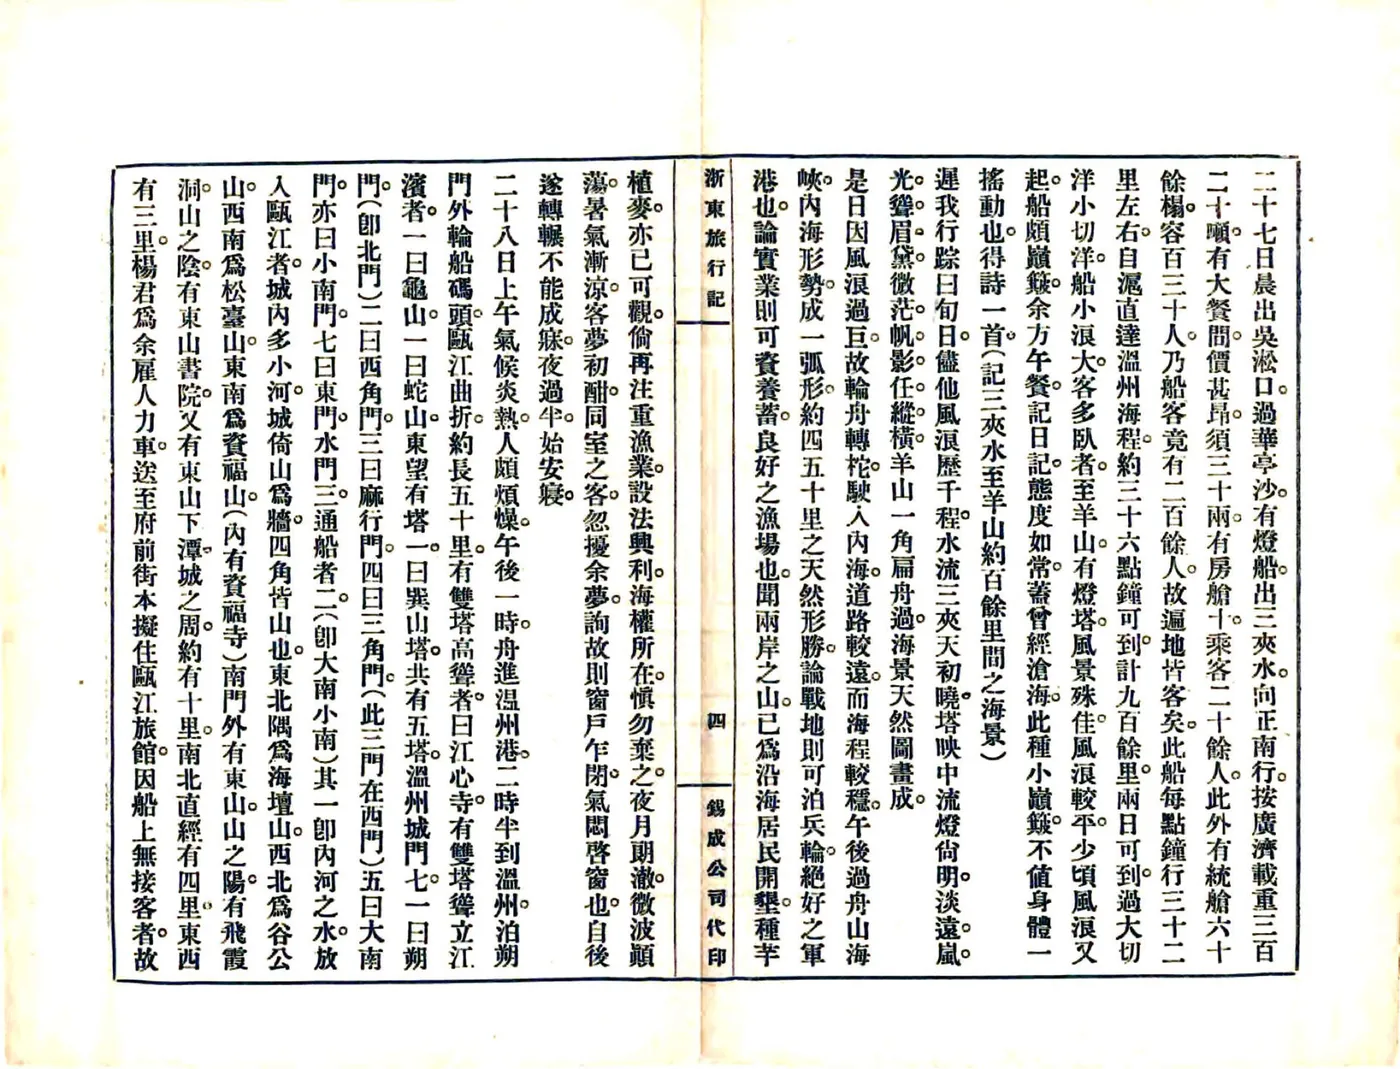 二十七日晨出吳淞口。過華亭沙。有燈船出三夾水。向正南行。按廣濟載重三百
二十噸。有大餐間。價甚昂。須三十兩。有房艙十。乘客二十餘人。此外有統艙六十
餘榻。容百三十人。乃船客竟有二百餘人。故遍地皆客矣。此船每點鐘行三十二
里左右。自滬直達溫州海程。約三十六點鐘可到。計九百餘里。兩日可到。過大切
洋小切洋。船小浪大。客多臥者。至羊山有燈塔。風景殊佳。風浪較平。少頃風浪又
起。船頗巓簸。余方午餐。記日記。態度如常。蓋曾經滄海。此種小巓簸。不値身體一
搖動也。得詩一首。(記三夾水至羊山約百餘里間之海景)
遲我行踪日旬日。儘他風浪歷千程。水流三夾天初曉。塔映中流燈尙明。淡遠。嵐。
光。聳。眉。黛。微。茫。帆。影。任。縱。橫。羊山一角扁舟過。海景天然圖畫成。
是日因風浪過巨。故輪舟轉柁。駛入內海。道路較遠。而海程較穩。午後過舟山海
峽。內海形勢。成一弧形。約四五十里之天然形勝。論戰地則可泊兵輪。絕好之軍
港也。論實業則可資養蓄。良好之漁場也。聞兩岸之山。已爲沿海居民開墾。種芋
浙東旅行記
四
錫成公司代印
植麥。亦已可觀。倘再注重漁業。設法興利。海權所在。愼勿棄之。夜月朗澈。微波顚
蕩。暑氣漸涼。客夢初酣。同室之客。忽擾余夢。詢故則窗戶乍閉。氣悶啓窗也。自後
遂轉輾不能成寐。夜過半。始安寢。
二十八日上午氣候炎熱。人頗煩燥。午後一時。舟進溫州港。二時半到溫州。泊朔
門外輪船碼頭。甌江曲折。約長五十里。有雙塔高聳者。曰江心寺。有雙塔聳立江
濱者。一曰龜山。一曰蛇山。東望有塔一。曰巽山塔。共有五塔。溫州城門七。一曰朔
門。(卽北門)二曰西角門。三曰麻行門。四曰三角門。(此三門在西門)五曰大南
門。亦曰小南門。七曰東門。水門三。通船者二。(卽大南小南)其一卽內河之水。放
入甌江者。城內多小河。城倚山爲牆。四角皆山也。東北隅爲海壇山。西北爲谷公
山。西南爲松臺山。東南爲資福山。(內有資福寺)南門外有東山。山之陽。有飛霞
洞。山之陰。有東山書院。又有東山下潭。城之周。約有十里。南北直經有四里。東西
有三里。楊君爲余雇人力車。送至府前街。本擬住甌江旅館。因船上無接客者。故